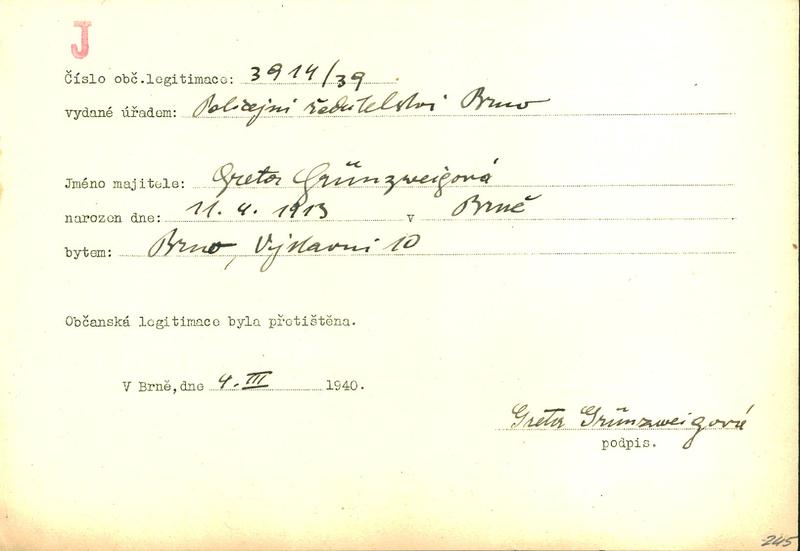 J
Číslo obč.legitimace: 3914/39
vydané úřadem: Policejní ředitelství Brno
Jméno majitele: Greta Grünzweigová
narozen dne: 11. 4. 1913 v Brně
bytem: Brno, Výstavní 10
Občanská legitimace byla přetištěna.
V Brně, dne 4. III 1940.
Greta Grünzweigová
podpis.
245